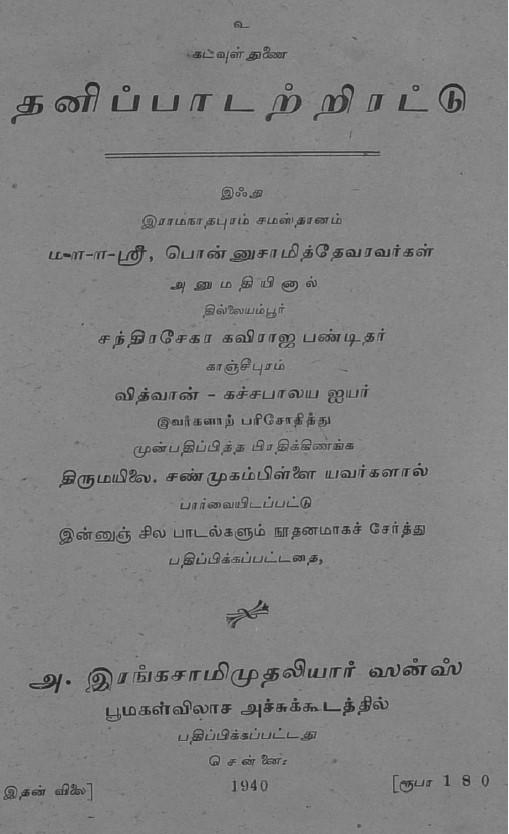 உ
கடவுள் துணை
தனிப்பாடற்றிரட்டு
இஃது
இராமநாதபுரம் சமஸ்தானம்
ம-ள-ள-ஸ்ரீ, பொன்னுசாமித்தேவரவர்கள்
அனுமதியினால்
தில்லையம்பூர்
சந்திரசேகர கவிராஜ பண்டிதர்
காஞ்சீபுரம்
வித்வான் - கச்சபாலய ஐயர்
இவர்களாற் பரிசோதித்து
முன்பதிப்பித்த பிரதிக்கிணங்க
திருமயிலை. சண்முகம்பிள்ளை யவர்களால்
பார்வையிடப்பட்டு
இன்னுஞ் சில பாடல்களும் நூதனமாகச் சேர்த்து
பதிப்பிக்கப்பட்டதை,
அ. இரங்கசாமிமுதலியார் ஸன்ஸ்
பூமகள்விலாச அச்சுக்கூடத்தில்
பதிப்பிக்கப்பட்டது
சென்னை:
இதன் விலை] 1940 [ரூபா 1 8 0